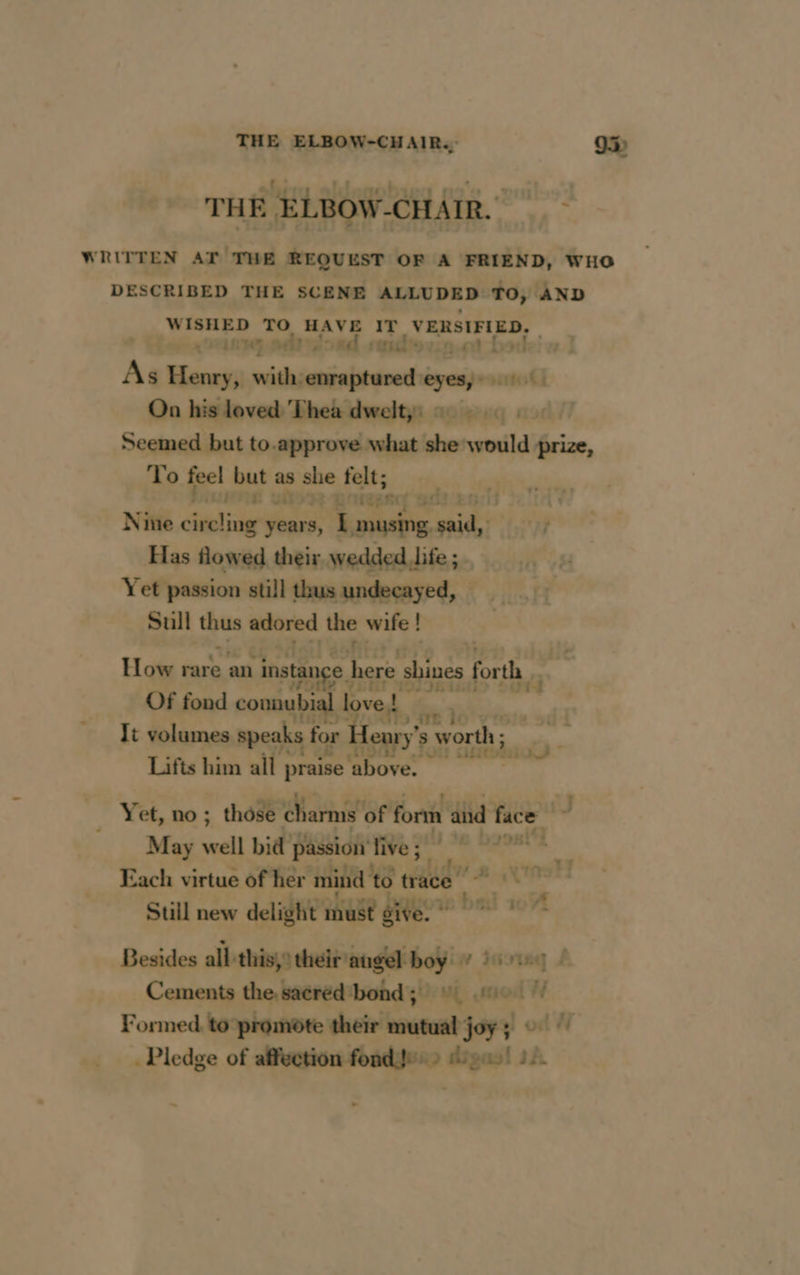 THE ELBOW-CHAIR. 95
THE ELBOW-CHAIR.
WRITTEN AT THE REQUEST OF A FRIEND, WHO
DESCRIBED THE SCENE ALLUDED TO, AND
WISHED TO HAVE IT VERSIFIED.
As Henry, with enraptured eyes,
On his loved Thea dwelt,
Seemed but to approve what she would prize,
To feel but as she felt;
Nine circling years, I musing said,
Has flowed their wedded life;
Yet passion still thus undecayed,
Still thus adored the wife!
How rare an instance here shines forth
Of fond connubial love!
It volumes speaks for Henry's worth;
Lifts him all praise above.
Yet, no; those charms of form and face
May well bid passion live;
Each virtue of her mind to trace
Still new delight must give.
Besides all this, their angel boy
Cements the sacred bond;
Formed to promote their mutual joy;
Pledge of affection fond!